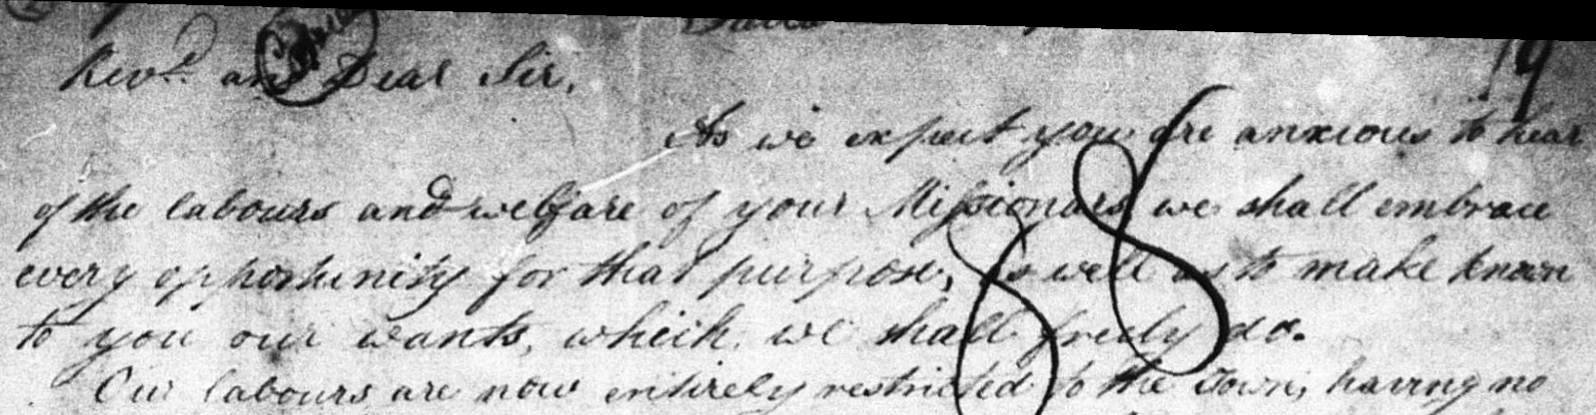 Revd. and Dear Sir,
19
As we expect you are anxious to hear
of the labours and welfare of your Missionars we shall embrace
every opportunity for that purpose, as well as to make known
to you our wants, which we shall freely do.
Our labours are now entirely restricted to the Town, having no